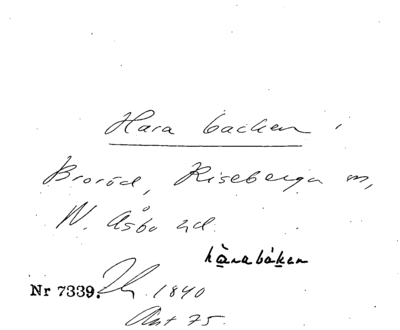 Hara backen
Broröd, Riseberga sn,
N. Åsbo hd.
härabàken
Nr 7339. 1840
Ant 75.